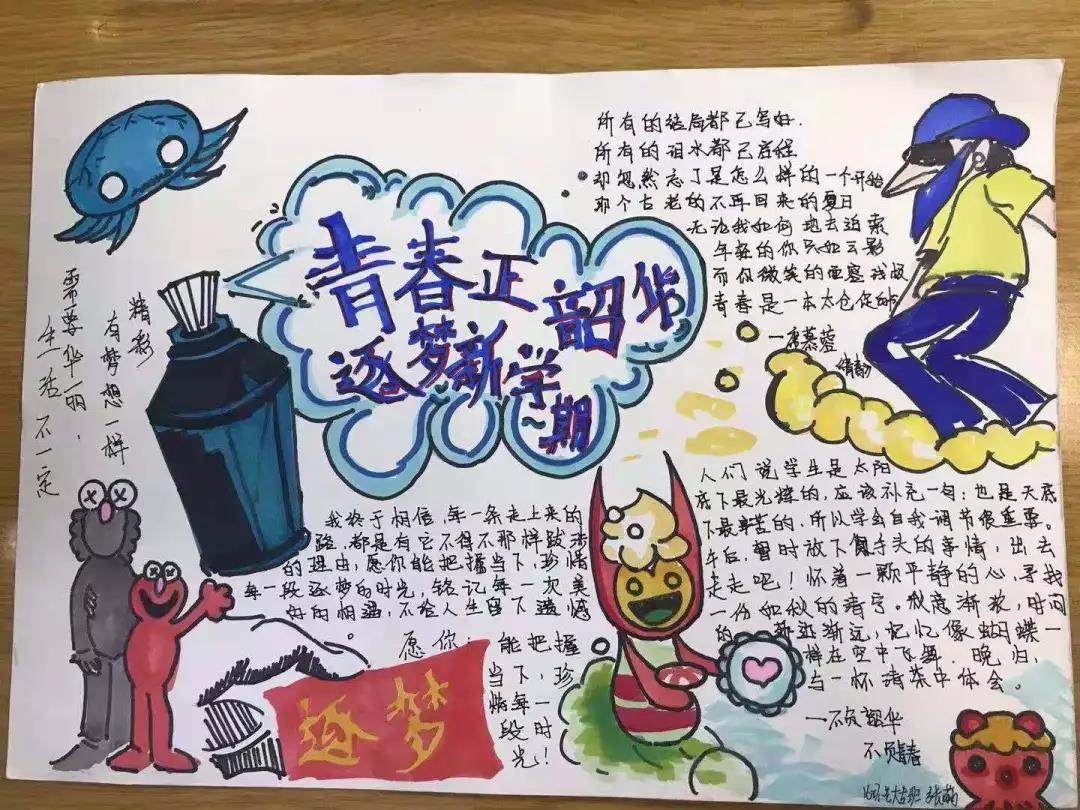 青春正韶华
逐梦新学期
所有的结局都已写好.
所有的泪水都已启程
却忽然忘了是怎么样的一个开始
那个古老的不再回来的夏日
无论我如何地去追索
年轻的你只如云影
而你微笑的面容
青春是一本太仓促的
一席慕蓉
精彩
有梦想一样
需要华丽,
生活不一定
我终于相信,每一条走上来的
路,都是有它不得不那样跋涉
的理由,愿你能把握当下,珍惜
每一段逐梦的时光,铭记每一次美
好的相遇,不给人生留下遗憾
。
愿你:能把握
当下,珍
惜每一
段时
光!
逐梦
人们说学生是太阳
底下最光辉的,应该补充一句:也是天底
下最辛苦的,所以学会自我调节很重要。
午后,暂时放下手头的事情,出去
走走吧!怀着一颗平静的心,寻找
一份如秋的清宁。秋意渐浓,时间
的渐远,忆像蝴蝶一
样在空中飞舞.晚归,
与一杯清茶中体会。
一不负韶华
不负青春